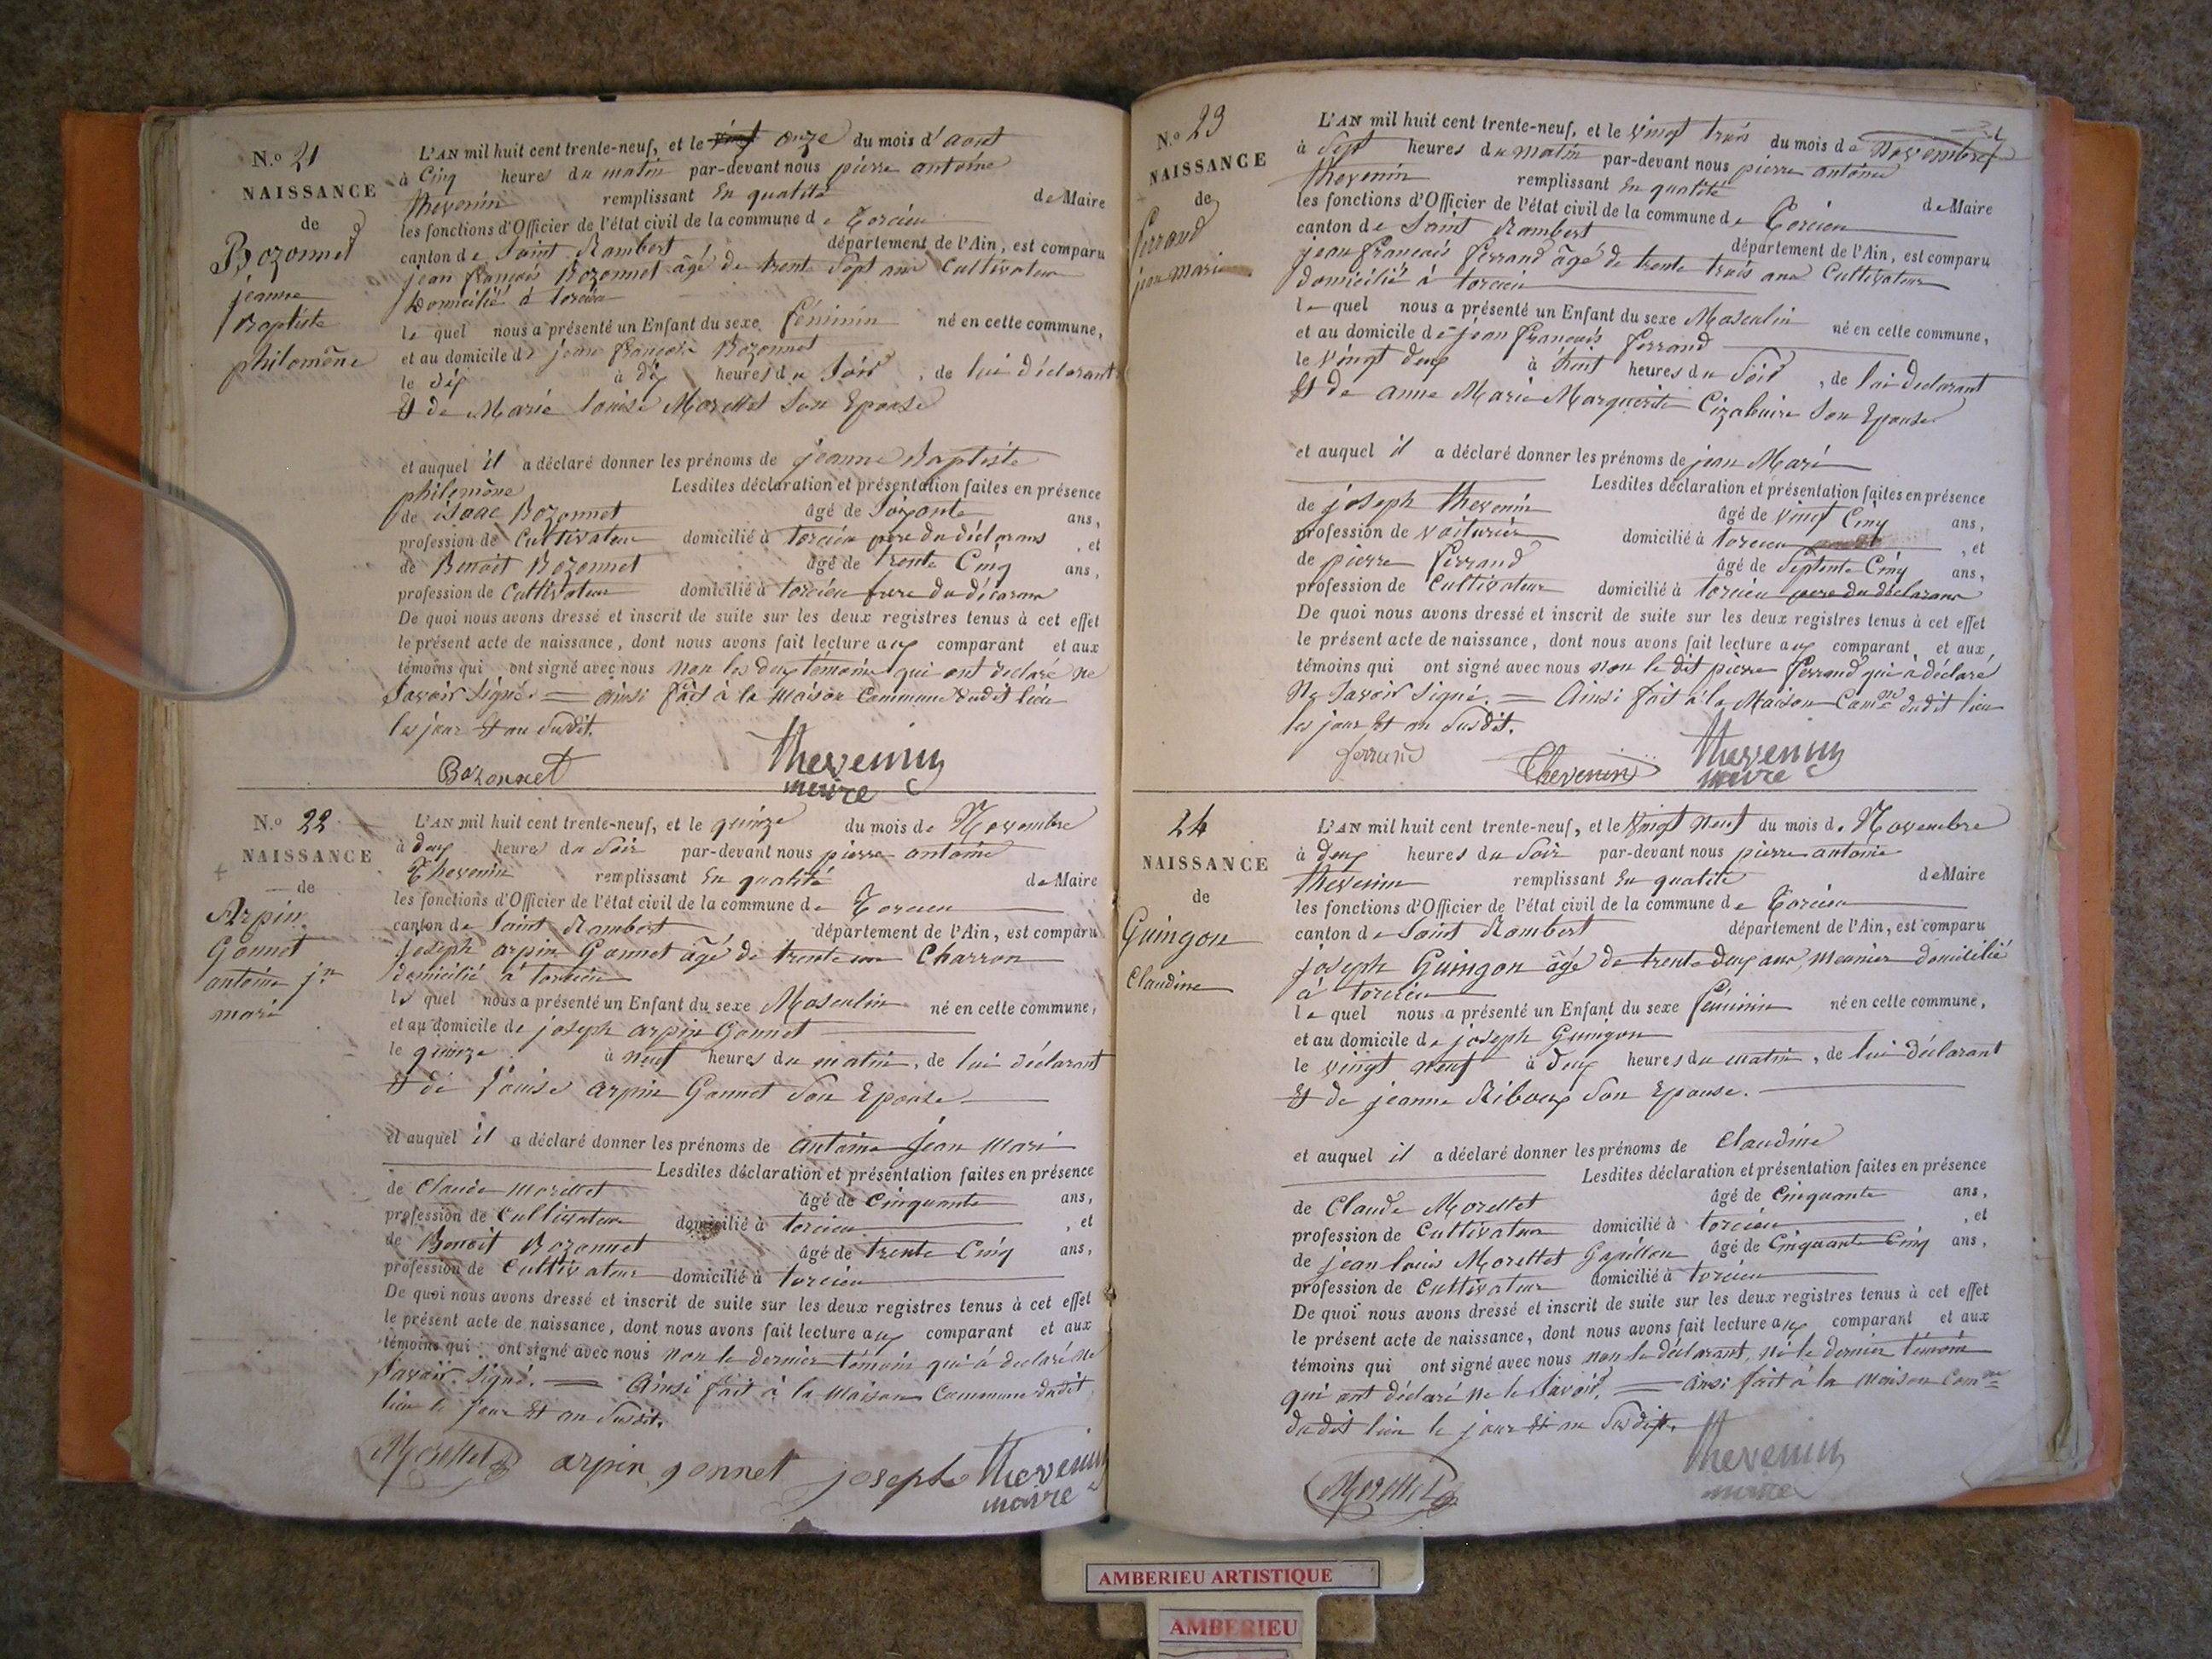 N.o 21
NAISSANCE
de
Bozonnet
jeanne
Baptiste
philomène
L'AN mil huit cent trente-neuf, et le vingt onze du mois d'aout
à Cinq heures du matin par-devant nous pierre antoine
thevenin remplissant En qualité de Maire
les fonctions d'Officier de l'état civil de la commune de Torcieu
canton de Saint Rambert département de l'Ain, est comparu
jean françois Bozonnet âgé de trente Sept ans Cultivateur
Domicilié à torcieu
le quel nous a présenté un Enfant du sexe féminin né en cette commune,
et au domicile de jean françois Bozonnet
le dix à dix heures du Soir, de lui déclarant
Et de Marie louise Morellet Son Epouse
et auquel il a déclaré donner les prénoms de jeanne Baptiste
philomène Lesdites déclaration et présentation faites en présence
de isaac Bozonnet âgé de Soixante ans,
profession de Cultivateur domicilié à torcieu pere du déclarans, et
de Benoit Bozonnet âgé de trente Cinq ans,
profession de Cultivateur domicilié à torcieu frere du déclarans
De quoi nous avons dressé et inscrit de suite sur les deux registres tenus à cet effet
le présent acte de naissance, dont nous avons fait lecture aux comparant et aux
témoins qui ont signé avec nous non les deux témoins qui ont declaré ne
Savoir Signé. = ainsi fait à la Maison Commune dudit lieu
les jour Et an Susdit.
Bozonnet
thevenin
maire
N.o 22
NAISSANCE
de
Arpin
Gonnet
antoine jn
mari
L'AN mil huit cent trente-neuf, et le quinze du mois de Novembre
à deux heures du Soir par-devant nous pierre antoine
Thevenin remplissant En qualité de Maire
les fonctions d'Officier de l'état civil de la commune de Torcieu
canton de Saint Rambert département de l'Ain, est comparu
Joseph arpin Gonnet âgé de trente un Charron
domicilié à torcieu
le quel nous a présenté un Enfant du sexe Masculin né en cette commune,
et au domicile de joseph arpin Gonnet
le quinze à neuf heures du matin, de lui déclarant
Et de louise arpin Gonnet Son Epouse
et auquel il a déclaré donner les prénoms de antoine Jean Mari
Lesdites déclaration et présentation faites en présence
de Claude Morellet âgé de Cinquante ans,
profession de Cultivateur domicilié à torcieu, et
de Benoit Bozonnet âgé de trente Cinq ans,
profession de Cultivateur domicilié à torcieu
De quoi nous avons dressé et inscrit de suite sur les deux registres tenus à cet effet
le présent acte de naissance, dont nous avons fait lecture aux comparant et aux
témoins qui ont signé avec nous non le dernier témoin qui à declaré ne
Savoir Signé. = Ainsi fait à la Maison Commune dudit
lieu le jour Et an Susdit.
Morellet arpin gonnet joseph thevenin
maire
N.o 23
NAISSANCE
de
ferrand
jean Marie
L'AN mil huit cent trente-neuf, et le vingt trois du mois de Novembre
à Sept heures du matin par-devant nous pierre antoine
thevenin remplissant En qualité de Maire
les fonctions d'Officier de l'état civil de la commune de Torcieu
canton de Saint Rambert département de l'Ain, est comparu
jean françois ferrand âgé de trente trois ans Cultivateur
domicilié à torcieu
le quel nous a présenté un Enfant du sexe Masculin né en cette commune,
et au domicile de jean françois ferrand
le vingt deux à huit heures du Soir, de lui declarant
Et de anne Marie Marguerite Cizabuire Son Epouse
et auquel il a déclaré donner les prénoms de jean Mari
Lesdites déclaration et présentation faites en présence
de joseph thevenin âgé de vingt Cinq ans,
profession de voiturier domicilié à torcieu, et
de pierre ferrand âgé de Septente Cinq ans,
profession de Cultivateur domicilié à torcieu pere du déclarans
De quoi nous avons dressé et inscrit de suite sur les deux registres tenus à cet effet
le présent acte de naissance, dont nous avons fait lecture aux comparant et aux
témoins qui ont signé avec nous non le dit pierre ferrand qui à déclaré
Ne Savoir Signé. = Ainsi fait à la Maison Comne dudit lieu
les jour Et an Susdit.
ferrand
Thevenin
thevenin
maire
24
NAISSANCE
de
Guingon
Claudine
L'AN mil huit cent trente-neuf, et le Vingt Neuf du mois de Novembre
à deux heures du Soir par-devant nous pierre antoine
thevenin remplissant En qualité de Maire
les fonctions d'Officier de l'état civil de la commune de Torcieu
canton de Saint Rambert département de l'Ain, est comparu
joseph Guingon âgé de trente deux ans, Meunier domicilié
à torcieu
le quel nous a présenté un Enfant du sexe féminin né en cette commune,
et au domicile de joseph Guingon
le vingt neuf à deux heures du matin, de lui déclarant
Et de jeanne Riboux Son Epouse.
et auquel il a déclaré donner les prénoms de Claudine
Lesdites déclaration et présentation faites en présence
de Claude Morellet âgé de Cinquante ans,
profession de Cultivateur domicilié à torcieu, et
de jean louis Morellet Gapillon âgé de Cinquante Cinq ans,
profession de Cultivateur domicilié à torcieu
De quoi nous avons dressé et inscrit de suite sur les deux registres tenus à cet effet
le présent acte de naissance, dont nous avons fait lecture aux comparant et aux
témoins qui ont signé avec nous non le déclarant, ni le dernier témoin
qui ont déclaré ne le Savoir. = ainsi fait à la Maison Comne
dudit lieu le jour Et an Susdit.
Morellet
thevenin
maire
AMBERIEU ARTISTIQUE
AMBERIEU